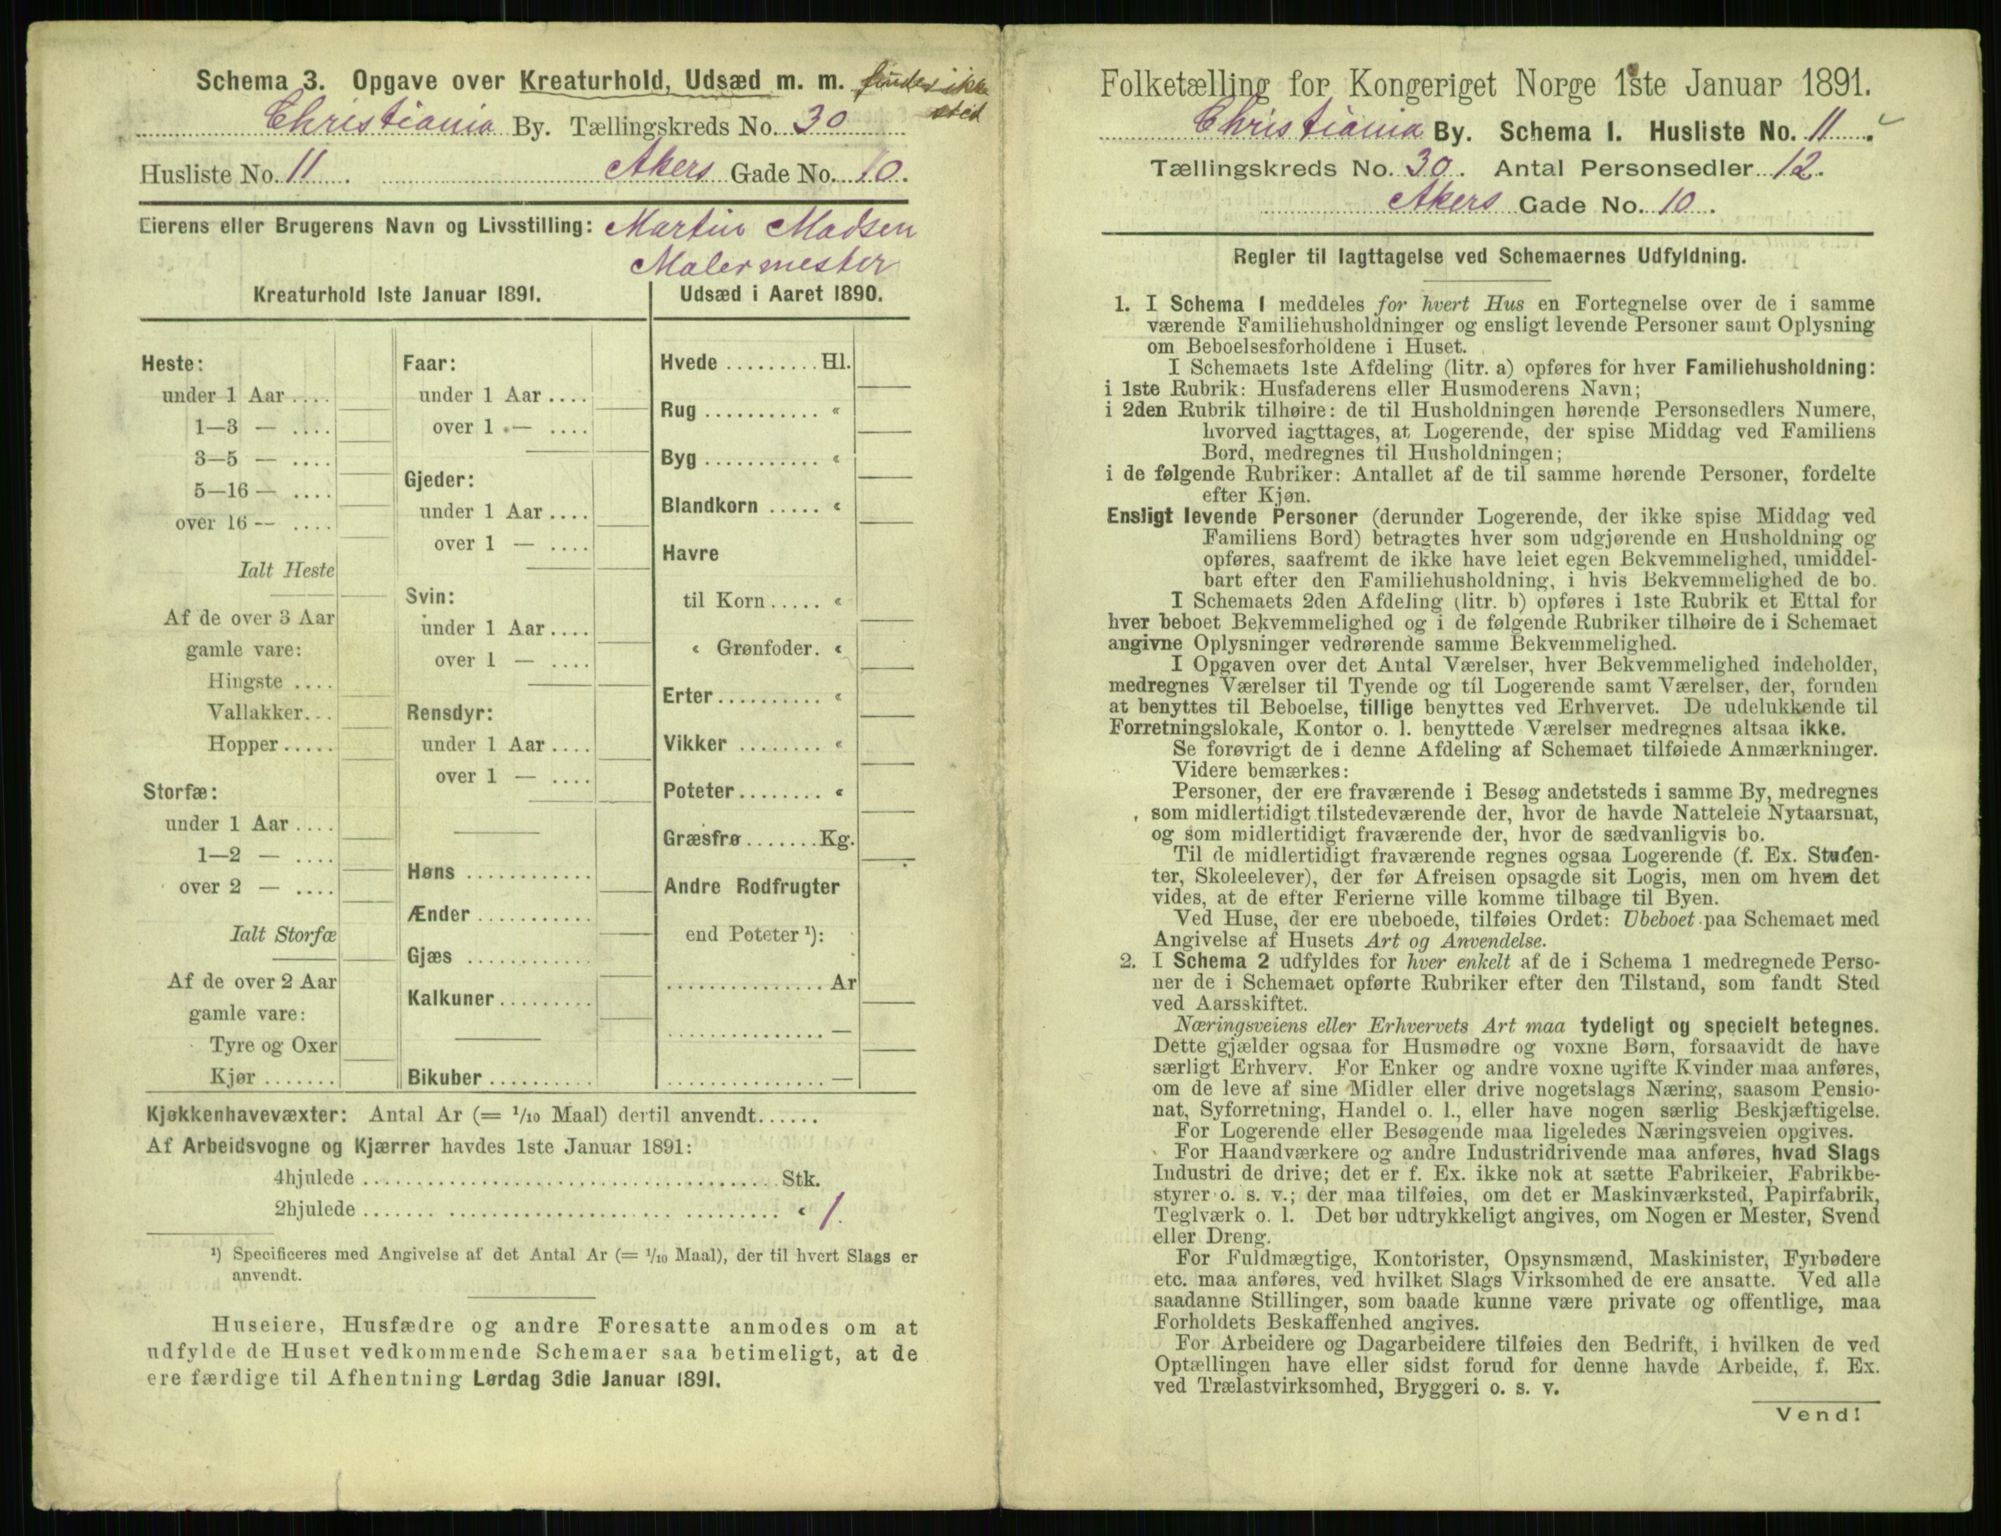 Schema 3. Opgave over Kreaturhold, Udsæd m. m. finder ikke
sted
Christiania By. Tællingskreds No. 30
Husliste No. 11. Akers Gade No. 10.
Eierens eller Brugerens Navn og Livsstilling: Martin Madsen
Malermester
Kreaturhold 1ste Januar 1891.
Heste:
under 1 Aar ....
1—3 — ....
3—5 — ....
5—16 — ....
over 16 — ....
Ialt Heste
Af de over 3 Aar
gamle vare:
Hingste ....
Vallakker...
Hopper.....
Storfæ:
under 1 Aar ....
1—2 — ....
over 2 — ....
Ialt Storfæ
Af de over 2 Aar
gamle vare:
Tyre og Oxer
Kjør.......
Faar:
under 1 Aar ....
over 1 — ....
Gjeder:
under 1 Aar ....
over 1 — ....
Svin:
under 1 Aar ....
over 1 — ....
Rensdyr:
under 1 Aar ....
over 1 — ....
Høns ............
Ænder...........
Gjæs ............
Kalkuner.........
Bikuber ..........
Udsæd i Aaret 1890.
Hvede ......... Hl.
Rug ........... «
Byg ........... «
Blandkorn ..... «
Havre
til Korn..... «
« Grønfoder. «
Erter.......... «
Vikker ........ «
Poteter........ «
Græsfrø.......Kg.
Andre Rodfrugter
end Poteter ¹):
............... Ar
............... —
............... —
Kjøkkenhavevæxter: Antal Ar (= 1/10 Maal) dertil anvendt......
Af Arbeidsvogne og Kjærrer havdes 1ste Januar 1891:
4hjulede .................................... Stk.
2hjulede .................................... « 1.
¹) Specificeres med Angivelse af det Antal Ar (= 1/10 Maal), der til hvert Slags er
anvendt.
Huseiere, Husfædre og andre Foresatte anmodes om at
udfylde de Huset vedkommende Schemaer saa betimeligt, at de
ere færdige til Afhentning Lørdag 3die Januar 1891.
Folketælling for Kongeriget Norge 1ste Januar 1891.
Christiania By. Schema 1. Husliste No. 11.
Tællingskreds No. 30. Antal Personsedler 12.
Akers Gade No. 10.
Regler til Iagttagelse ved Schemaernes Udfyldning.
1. I Schema 1 meddeles for hvert Hus en Fortegnelse over de i samme
værende Familiehusholdninger og ensligt levende Personer samt Oplysning
om Beboelsesforholdene i Huset.
I Schemaets 1ste Afdeling (litr. a) opføres for hver Familiehusholdning:
i 1ste Rubrik: Husfaderens eller Husmoderens Navn;
i 2den Rubrik tilhøire: de til Husholdningen hørende Personsedlers Numere,
hvorved iagttages, at Logerende, der spise Middag ved Familiens
Bord, medregnes til Husholdningen;
i de følgende Rubriker: Antallet af de til samme hørende Personer, fordelte
efter Kjøn.
Ensligt levende Personer (derunder Logerende, der ikke spise Middag ved
Familiens Bord) betragtes hver som udgjørende en Husholdning og
opføres, saafremt de ikke have leiet egen Bekvemmelighed, umiddel-
bart efter den Familiehusholdning, i hvis Bekvemmelighed de bo.
I Schemaets 2den Afdeling (litr. b) opføres i 1ste Rubrik et Ettal for
hver beboet Bekvemmelighed og i de følgende Rubriker tilhøire de i Schemaet
angivne Oplysninger vedrørende samme Bekvemmelighed.
I Opgaven over det Antal Værelser, hver Bekvemmelighed indeholder,
medregnes Værelser til Tyende og til Logerende samt Værelser, der, foruden
at benyttes til Beboelse, tillige benyttes ved Erhvervet. De udelukkende til
Forretningslokale, Kontor o. l. benyttede Værelser medregnes altsaa ikke.
Se forøvrigt de i denne Afdeling af Schemaet tilføiede Anmærkninger.
Videre bemærkes:
Personer, der ere fraværende i Besøg andetsteds i samme By, medregnes
som midlertidigt tilstedeværende der, hvor de havde Natteleie Nytaarsnat,
og som midlertidigt fraværende der, hvor de sædvanligvis bo.
Til de midlertidigt fraværende regnes ogsaa Logerende (f. Ex. Studen-
ter, Skoleelever), der før Afreisen opsagde sit Logis, men om hvem det
vides, at de efter Ferierne ville komme tilbage til Byen.
Ved Huse, der ere ubeboede, tilføies Ordet: Ubeboet paa Schemaet med
Angivelse af Husets Art og Anvendelse.
2. I Schema 2 udfyldes for hver enkelt af de i Schema 1 medregnede Perso-
ner de i Schemaet opførte Rubriker efter den Tilstand, som fandt Sted
ved Aarsskiftet.
Næringsveiens eller Erhvervets Art maa tydeligt og specielt betegnes.
Dette gjælder ogsaa for Husmødre og voxne Børn, forsaavidt de have
særligt Erhverv. For Enker og andre voxne ugifte Kvinder maa anføres,
om de leve af sine Midler eller drive nogetslags Næring, saasom Pensio-
nat, Syforretning, Handel o. l., eller have nogen særlig Beskjæftigelse.
For Logerende eller Besøgende maa ligeledes Næringsveien opgives.
For Haandværkere og andre Industridrivende maa anføres, hvad Slags
Industri de drive; det er f. Ex. ikke nok at sætte Fabrikeier, Fabrikbe-
styrer o. s. v.; der maa tilføies, om det er Maskinværksted, Papirfabrik,
Teglværk o. l. Det bør udtrykkeligt angives, om Nogen er Mester, Svend
eller Dreng.
For Fuldmægtige, Kontorister, Opsynsmænd, Maskinister, Fyrbødere
etc. maa anføres, ved hvilket Slags Virksomhed de ere ansatte. Ved alle
saadanne Stillinger, som baade kunne være private og offentlige, maa
Forholdets Beskaffenhed angives.
For Arbeidere og Dagarbeidere tilføies den Bedrift, i hvilken de ved
Optællingen have eller sidst forud for denne havde Arbeide, f. Ex.
ved Trælastvirksomhed, Bryggeri o. s. v.
Vend!